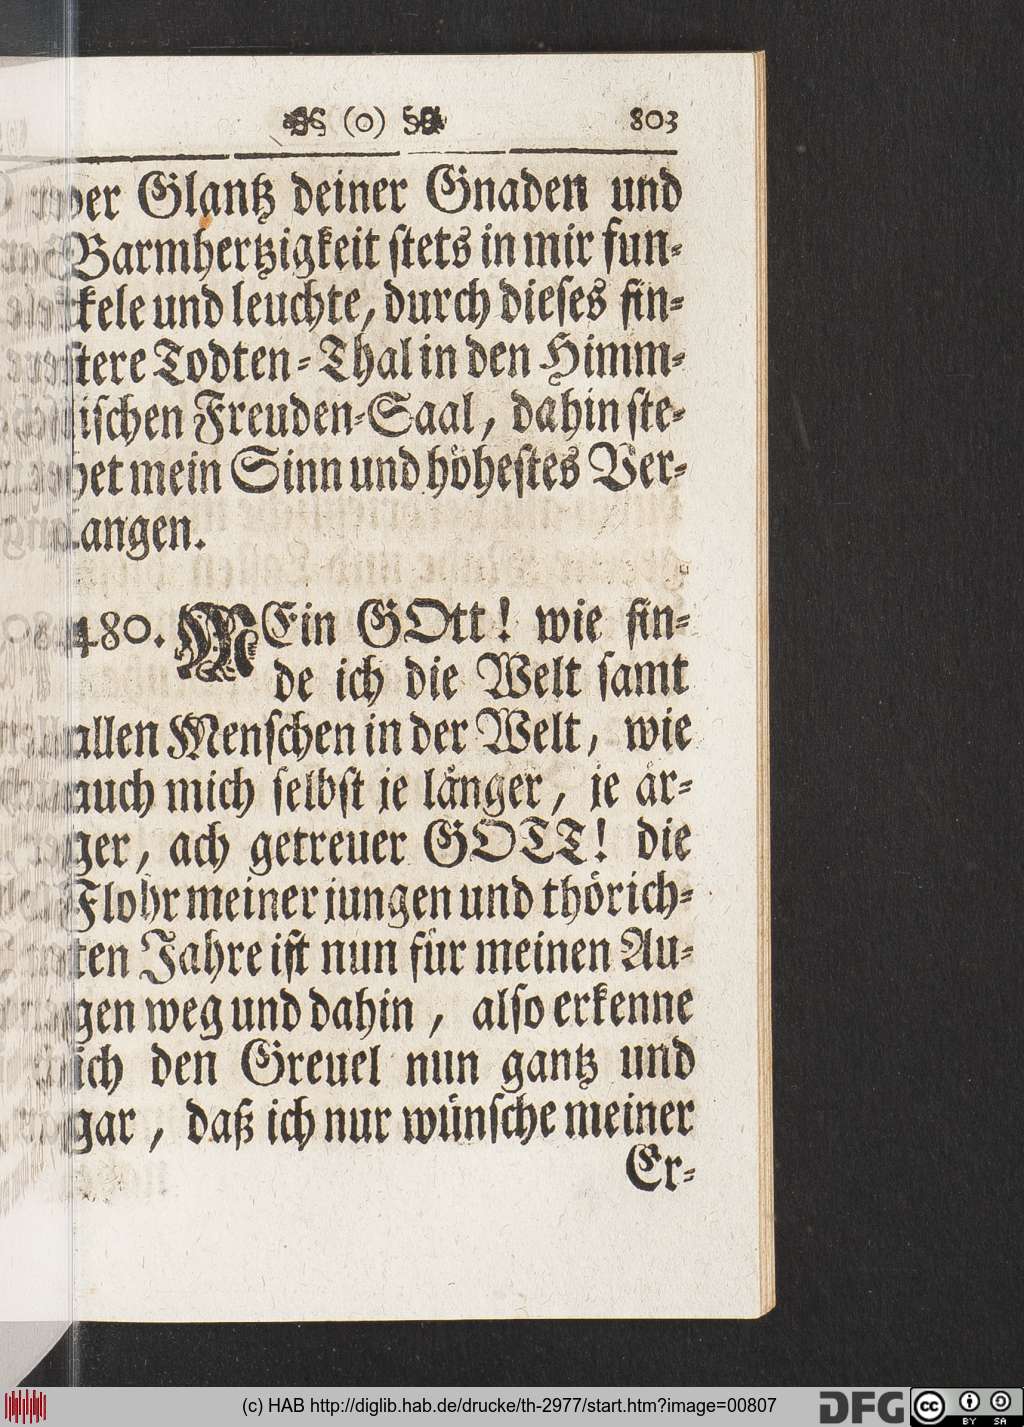 (o) 803
der Glantz deiner Gnaden und
Barmhertzigkeit stets in mir fun-
kele und leuchte, durch dieses fin-
stere Todten-Thal in den Himm-
lischen Freuden-Saal, dahin ste-
het mein Sinn und höhestes Ver-
langen.
480. MEin GOtt! wie fin-
de ich die Welt samt
allen Menschen in der Welt, wie
auch mich selbst je länger, je är-
ger, ach getreuer GOTT! die
Flohr meiner jungen und thörich-
ten Jahre ist nun für meinen Au-
gen weg und dahin, also erkenne
ich den Greuel nun gantz und
gar, daß ich nur wünsche meiner
Er-
(c) HAB http://diglib.hab.de/drucke/th-2977/start.htm?image=00807
DFG
cc BY SA